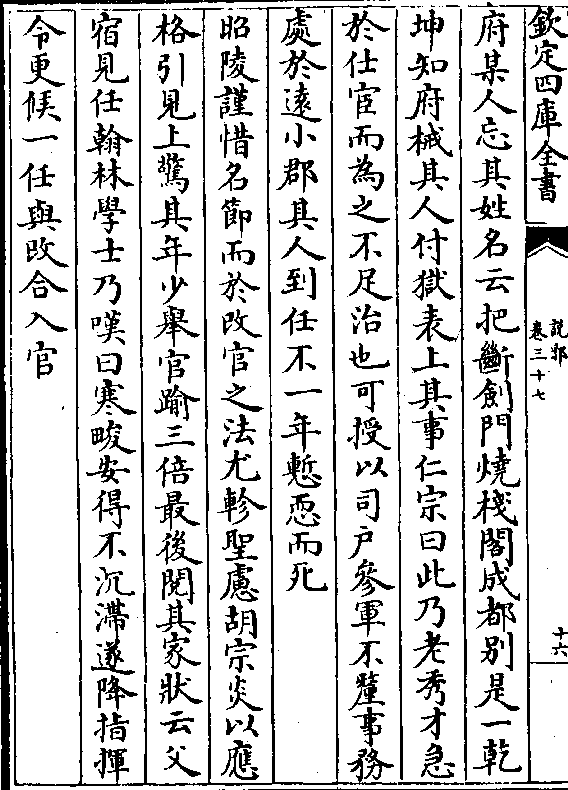 欽定四庫全書
說郛
卷三十七
十六
府某人忘其姓名云把斷劍門燒棧閣成都别是一乾
坤知府械其人付獄表上其事仁宗曰此乃老秀才急
於仕宦而為之不足治也可授以司户參軍不釐事務
處於逺小郡其人到任不一年慙恧而死
昭陵謹惜名節而於改官之法尤軫聖慮胡宗炎以應
格引見上驚其年少舉官踰三倍最後閱其家狀云父
宿見任翰林學士乃嘆曰寒畯安得不沉滯遂降指揮
令更候一任與改合入官